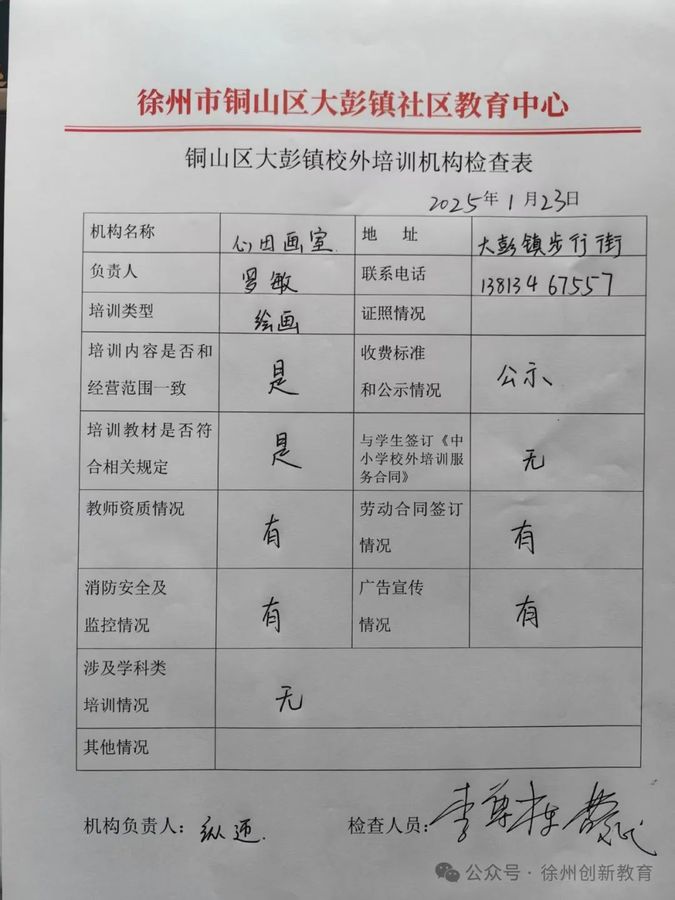 徐州市铜山区大彭镇社区教育中心
铜山区大彭镇校外培训机构检查表
2025年1月23日
机构名称 心田画室 地 址 大彭镇步行街
负责人 罗敏 联系电话 13813467557
培训类型 绘画 证照情况
培训内容是否和
经营范围一致
是
收费标准
和公示情况
公示
培训教材是否符
合相关规定
是
与学生签订《中
小学校外培训服
务合同》
无
教师资质情况
有
劳动合同签订
情况
有
消防安全及
监控情况
有
广告宣传
情况
有
涉及学科类
培训情况
无
其他情况
机构负责人：纵 检查人员：李尊
公众号·徐州创新教育